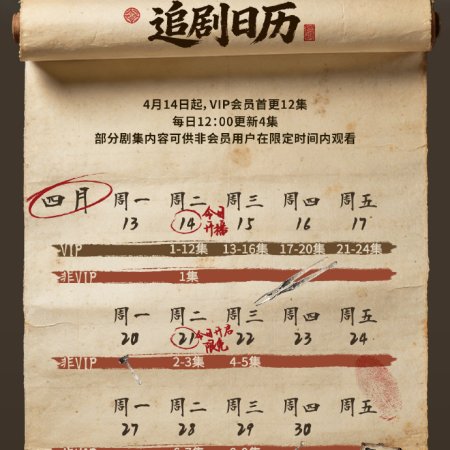 追剧日历
4月14日起，VIP会员首更12集
每日12：00更新4集
部分剧集内容可供非会员用户在限定时间内观看
四月 周一 周二 周三 周四 周五
13 14 今日开播 15 16 17
VIP 1-12集 13-16集 17-20集 21-24集
非VIP 1集
周一 周二 周三 周四 周五
20 21 今日开启限免 22 23 24
非VIP 2-3集 4-5集
周一 周二 周三 周四 周五
27 28 29 30